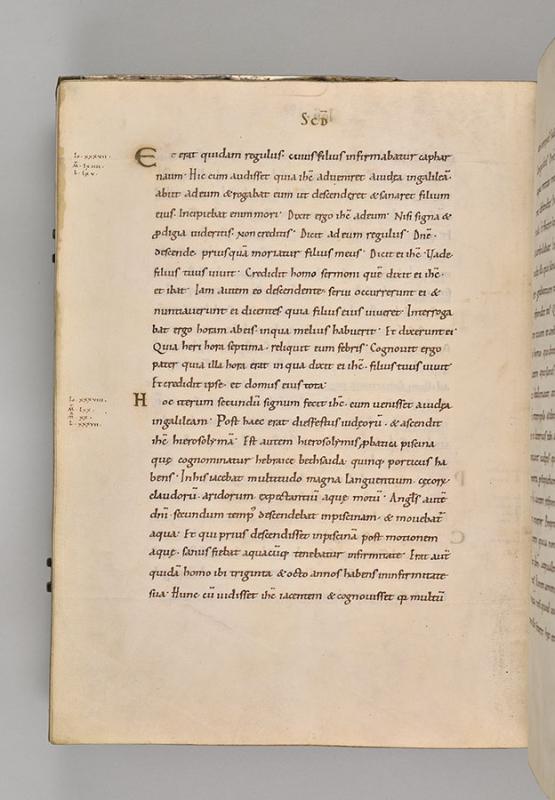 Scd
Et erat quidam regulus· cuius filius infirmabatur caphar
naum· Hic cum audisset quia ihc adveniret a iudea in galileā·
abiit ad eum & rogabat eum ut descenderet & sanaret filium
eius· Incipiebat enim mori· Dixit ergo ihc ad eum· Nisi signa &
prodigia videritis· non creditis· Dicit ad eum regulus· Dne·
descende· priusquā moriatur filius meus· Dicit ei ihc· Vade·
filius tuus uiuit· Credidit homo sermoni quē dixit ei ihc·
et ibat· Iam autem eo descendente· serui occurrerunt ei &
nuntiauerunt ei dicentes quia filius eius uiueret· Interroga
bat ergo horam ab eis in qua melius habuerit· Et dixerunt ei·
Quia heri hora septima· reliquit eum febris· Cognouit ergo
pater quia illa hora erat in qua dixit ei ihc· filius tuus uiuit·
Et credidit ipse· et domus eius tota·
Hoc iterum secundū signum fecit ihc· cum venisset a iudea
in galileam· Post haec erat dies festus iudeorū· & ascendit
ihc hierosolymā· Est autem hierosolymis probatica piscina
que cognominatur hebraice bethsaida· quinq porticus ha
bens· In his iacebat multitudo magna languentium· cecorū·
claudorū· aridorum· expectantiū aque motū· Angls autē
dni· secundum temp' descendebat in piscinam· & mouebat'
aqua· Et qui prius descendisset in piscinā post motionem
aque· sanus fiebat a quacūq tenebatur infirmitate· Erat autē
quidā homo ibi triginta & octo annos habens in infirmitate
sua· Hunc cū uidisset ihc iacentem & cognouisset qa multū